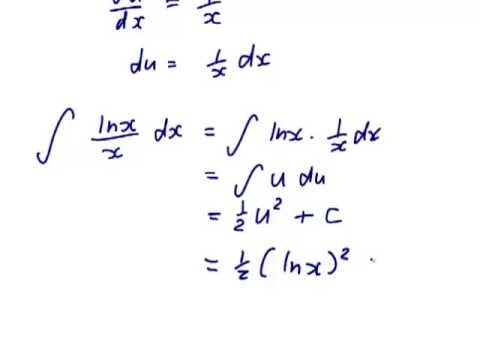 du/dx = 1/x
du = 1/x dx
∫ lnx/x dx = ∫ lnx · 1/x dx
= ∫ u du
= 1/2 u² + C
= 1/2 (lnx)²